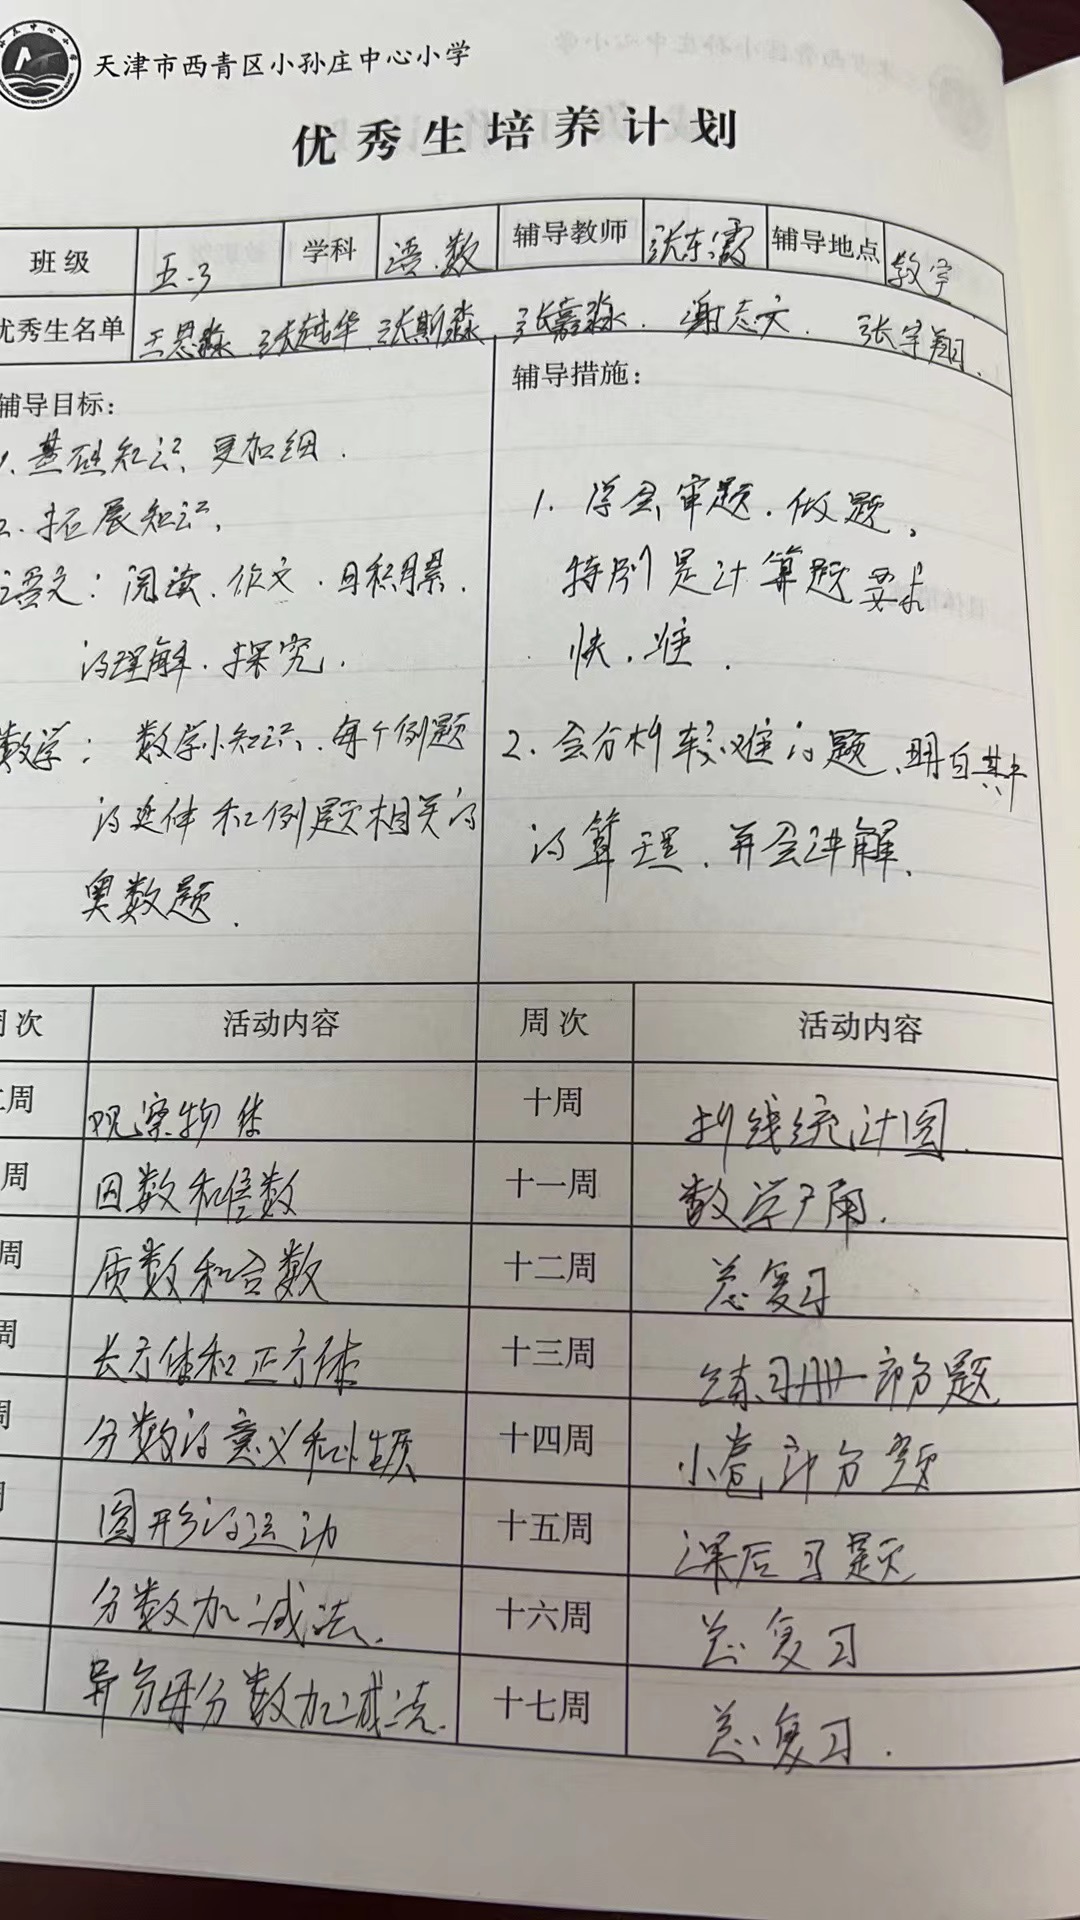 天津市西青区小孙庄中心小学
优秀生培养计划
班级 五.3 学科 语.数 辅导教师 张东霞 辅导地点 教室
优秀生名单 王恩淼、张越华、张斯淼、张嘉淼、谢志文、张宇翔.
辅导目标:
1、基础知识、更加细.
2、拓展知识、
语文:阅读、作文、日积月累.
的理解、探究.
数学:数学小知识、每个例题
的延伸和例题相关的
奥数题.
辅导措施:
1、学会审题、做题,
特别是计算题要求
快、准.
2、会分析较难的题、明白其中
的算理、并会讲解.
周次 活动内容 周次 活动内容
周 观察物体 十周 折线统计图.
周 因数和倍数 十一周 数学广角.
周 质数和合数 十二周 总复习
周 长方体和正方体 十三周 练习册部分题
周 分数的意义和性质 十四周 小卷部分题
图形的运动 十五周 课后习题
分数加减法. 十六周 总复习
异分母分数加减法. 十七周 总复习.